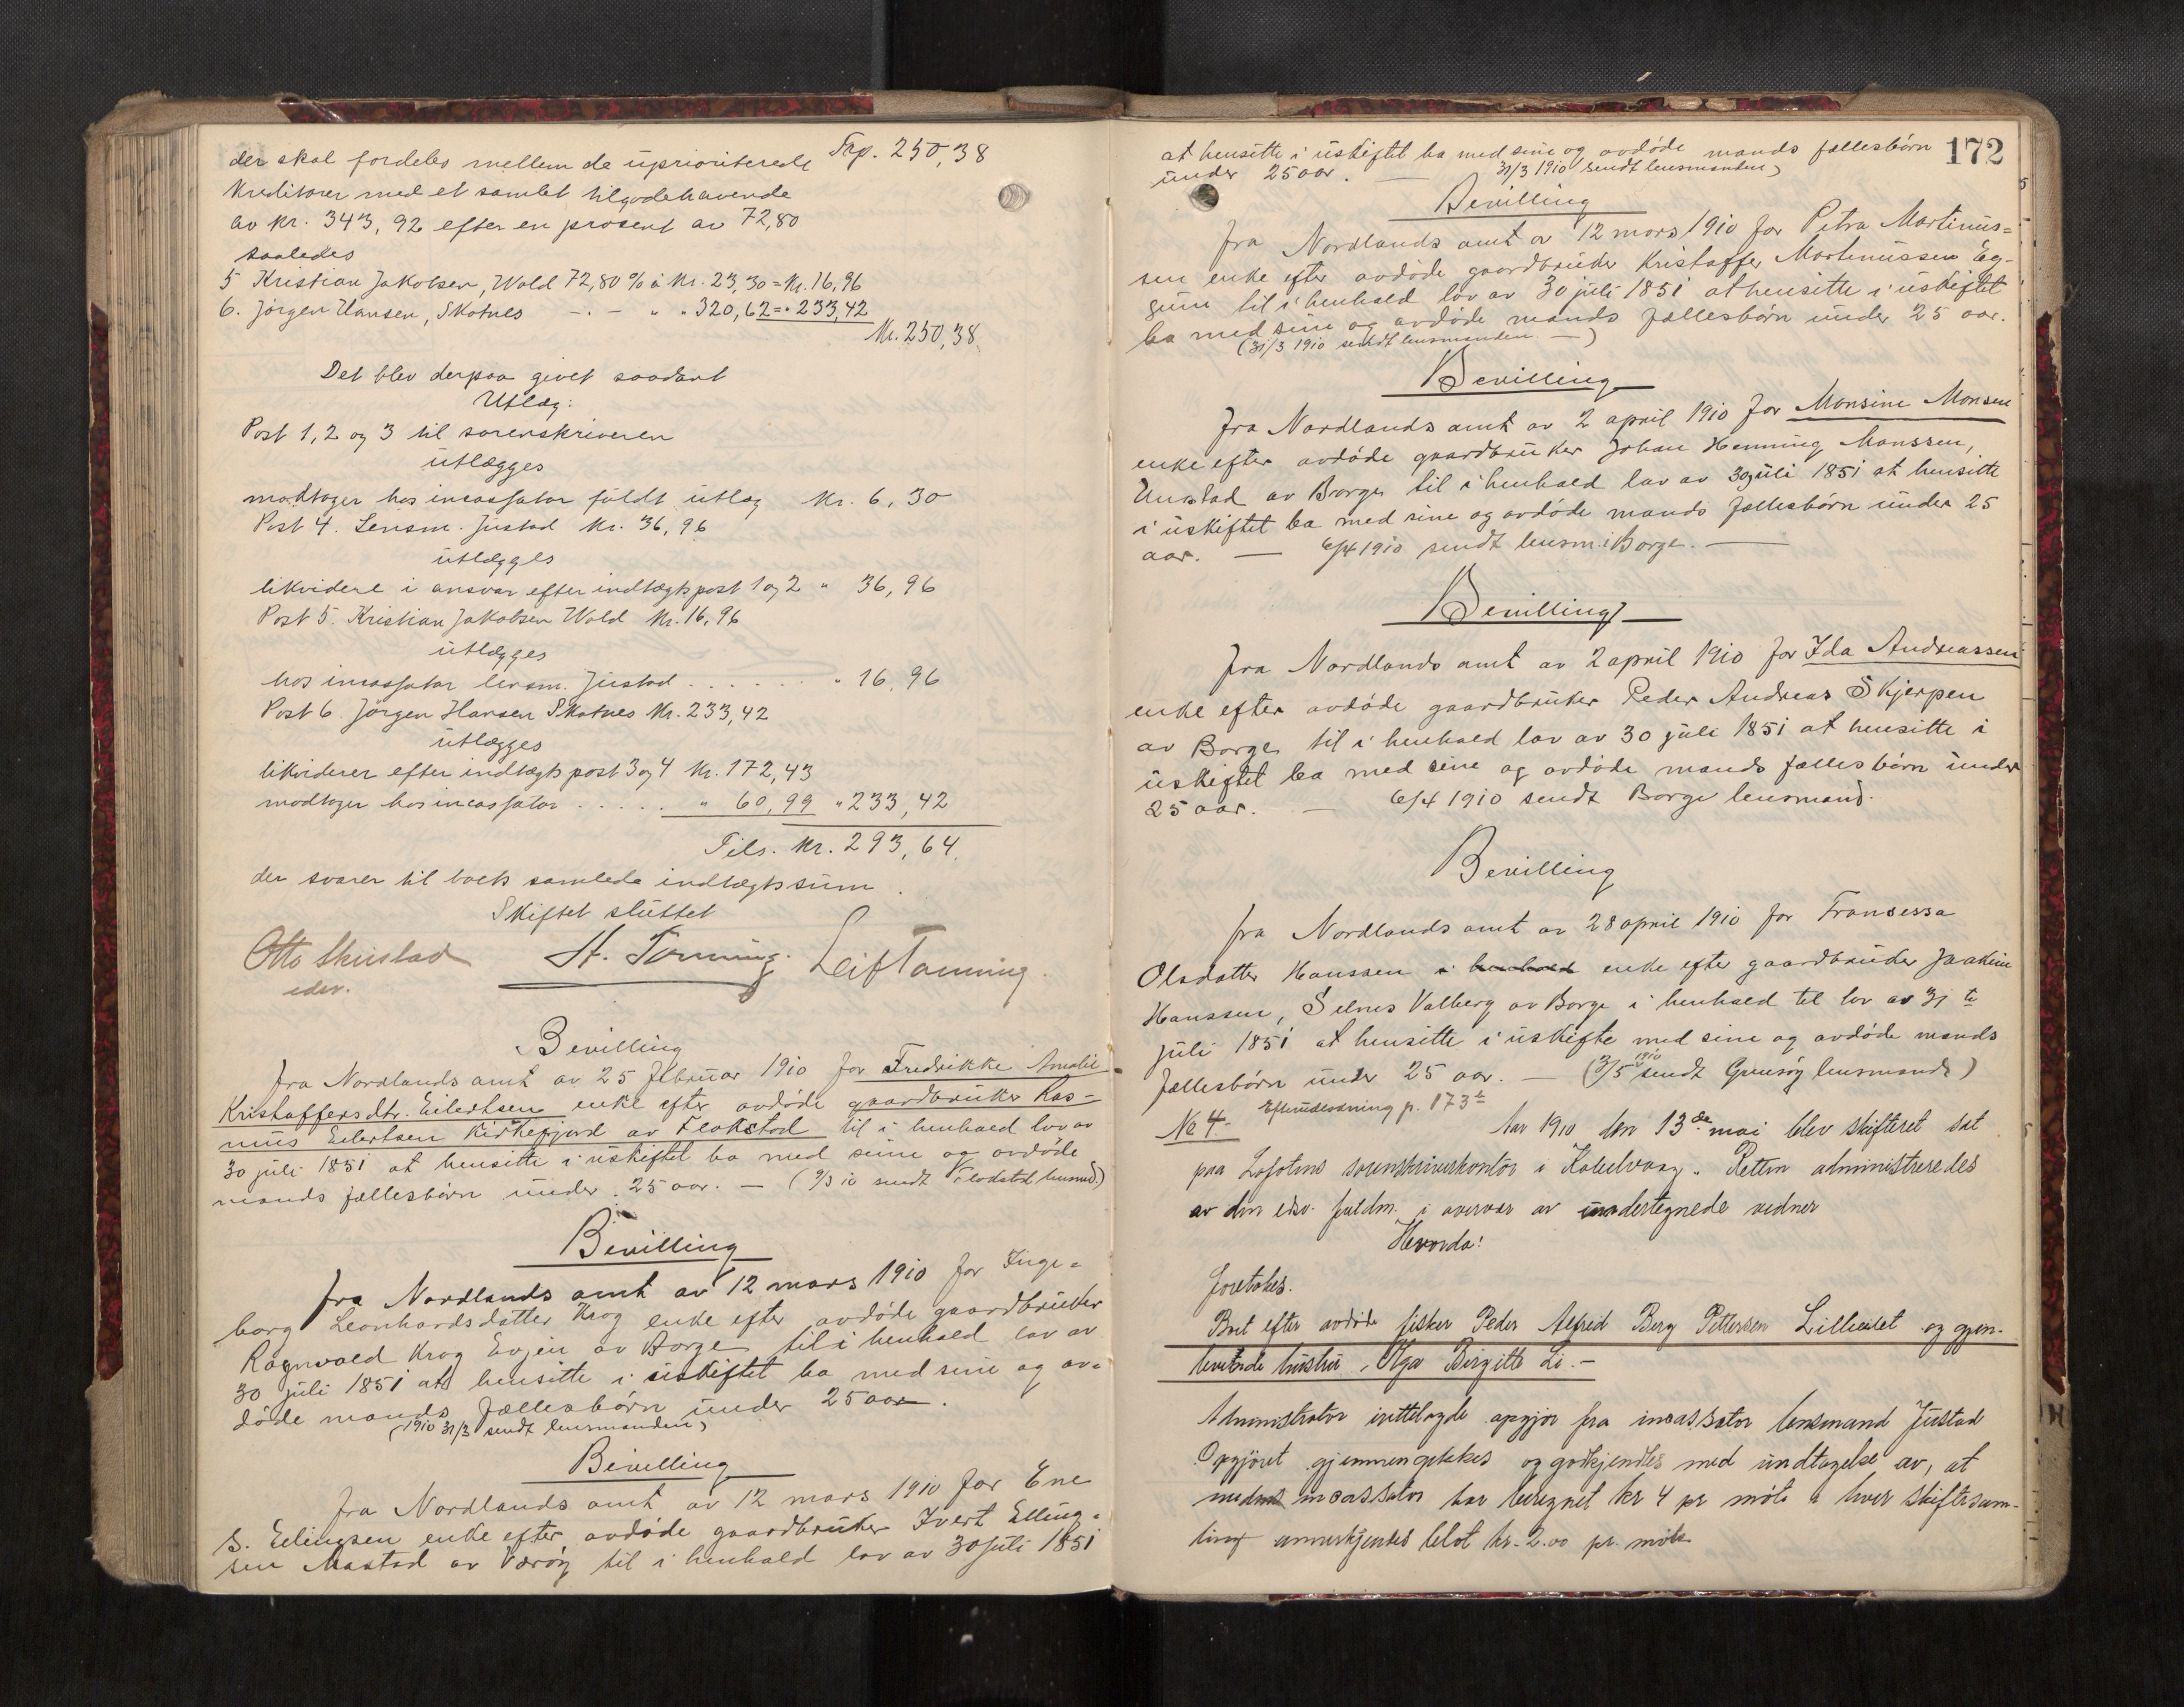 der skal fordeles mellem de uprioriterede Trp. 250,38
kreditorer med et samlet tilgodehavende
av kr. 343,92 efter en prosent av 72,80
saaledes
5 Kristian Jakobsen, Wold 72,80 % à kr. 23,30 = kr. 16,96
6. Jörgen Hansen, Skotnes -.- " " 320,62 = " 233,42
Kr. 250,38
Det blev derpaa givet saadant
Utlæg:
Post 1, 2 og 3 til sorenskriveren
utlægges
modtager hos incassator fuldt utlæg kr. 6,30
Post 4. Lensm. Justad kr. 36,96
utlægges
likvidere i ansvar efter indtægtspost 1 og 2 " 36,96
Post 5. Kristian Jakobsen Wold kr. 16,96
utlægges
hos incassator lensm. Justad . . . . . . " 16,96
Post 6. Jörgen Hansen Skotnes kr. 233,42
utlægges
likviderer efter indtægtspost 3 og 4 kr. 172,43
modtager hos incassator . . . . . " 60,99 " 233,42
Tils. kr. 293,64
der svarer til boets samlede indtægtssum.
Skiftet sluttet
Otto Skustad H. Tonning. Leif Tonning.
edsv.
Bevilling
fra Nordlands amt av 25 februar 1910 for Fredrikke Amalie
Kristoffersdtr. Eilertsen enke efter avdöde gaardbruker Ras-
mus Eilertsen Kirkefjord av Flakstad til i henhold lov av
30 juli 1851 at hensitte i uskiftet bo med sine og avdöde
mands fællesbörn under 25 aar. — (9/3 10 sendt Flakstad lensmd.)
Bevilling
fra Nordlands amt av 12 mars 1910 for Inge-
borg Leonhardsdatter Krog enke efter avdöde gaardbruker
Ragnvald Krog Evjen av Borge til i henhold lov av
30 juli 1851 at hensitte i uskiftet bo med sine og av-
döde mands fællesbörn under 25 aar.
(1910 31/3 sendt lensmanden)
Bevilling
fra Nordlands amt av 12 mars 1910 for Ene
S. Edingsen enke efter avdöde gaardbruker Ivert Elling-
sen Mastad av Værøy til i henhold lov av 30 juli 1851
172
at hensitte i uskiftet bo med sine og avdöde mands fællesbörn
under 25 aar. — 31/3 1910 sendt lensmanden)
Bevilling
fra Nordlands amt av 12 mars 1910 for Petra Martinus-
sen enke efter avdöde gaardbruker Kristoffer Martinussen Eg-
gum til i henhold lov av 30 juli 1851 at hensitte i uskiftet
bo med sine og avdöde mands fællesbörn under 25 aar.
(31/3 1910 sendt lensmanden —)
Bevilling
fra Nordlands amt av 2 april 1910 for Monsine Monsen
enke efter avdöde gaardbruker Johan Henning Monssen,
Unstad av Borge til i henhold lov av 30 juli 1851 at hensitte
i uskiftet bo med sine og avdöde mands fællesbörn under 25
aar. — 6/4 1910 sendt lensm. i Borge. —
Bevilling
fra Nordlands amt av 2 april 1910 for Ida Andreassen
enke efter avdöde gaardbruker Peder Andreas Skjerpen
av Borge til i henhold lov av 30 juli 1851 at hensitte i
uskiftet bo med sine og avdöde mands fælles börn under
25 aar. — 6/4 1910 sendt Borge lensmand.
Bevilling
fra Nordlands amt av 28 april 1910 for Fransessa
Olsdatter Hanssen i henhold enke efter gaardbruder Joakim
Hanssen, Selnes Valberg av Borge i henhold til lov av 31 te
juli 1851 at hensitte i uskifte med sine og avdöde mands
fællesbörn under 25 aar. — (3/5 1910 sendt Gimsöy lensmand)
No 4. Efterutlodning p. 173 b
Aar 1910 den 13de mai blev skifteret sat
paa Lofotens sorenskriverkontor i Kabelvaag. Retten administreredes
av den edsv. fuldm. i overvær av undertegnede vidner
Hvorda:
foretokes.
Boet efter avdöde fisker Peder Alfred Berg Pettersen Lilleeidet og gjen-
levende hustru, Olga Birgitte Li. —
Administrator irettelagde opgjör fra incassator lensmand Justad
Opgjöret gjennemgikkes og godkjendtes med undtagelse av, at
medens incassator har beregnet kr 4 pr möte a hver skiftesam-
ling annerkjendes blot kr. 2.00 pr. möte